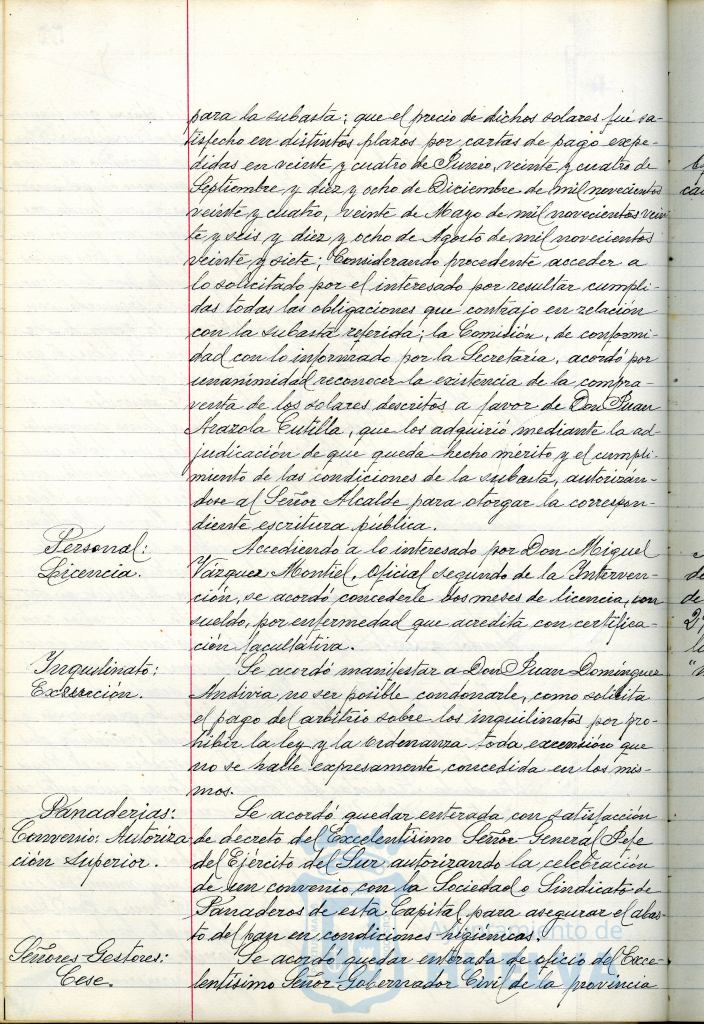 para la subasta; que el precio de dichos solares fué sa-
tisfecho en distintos plazos por cartas de pago expe-
didas en veinte y cuatro de Junio, veinte y cuatro de
Septiembre y diez y ocho de Diciembre de mil novecientos
veinte y cuatro, veinte de Mayo de mil novecientos vein
te y seis y diez y ocho de Agosto de mil novecientos
veinte y siete; Considerando procedente acceder a
lo solicitado por el interesado por resultar cumpli-
das todas las obligaciones que contrajo en relación
con la subasta referida; la Comisión, de conformi-
dad con lo informado por la Secretaría, acordó por
unanimidad reconocer la existencia de la compra-
venta de los solares descritos a favor de Don Juan
Arazola Cutilla, que los adquirió mediante la ad-
judicación de que queda hecho mérito y el cumpli-
miento de las condiciones de la subasta, autorizán-
dose al Señor Alcalde para otorgar la correspon-
diente escritura pública.
Personal:
Licencia.
Accediendo a lo interesado por Don Miguel
Vázquez Montiel, Oficial segundo de la Interven-
ción, se acordó concederle dos meses de licencia, con
sueldo, por enfermedad que acredita con certifica-
ción facultativa.
Inquilinato:
Exención.
Se acordó manifestar a Don Juan Domínguez
Andivia, no ser posible condonarle, como solicita
el pago del arbitrio sobre los inquilinatos por pro-
hibir la ley y la ordenanza toda excensión que
no se halle expresamente concedida en los mis-
mos.
Panaderias:
Convenio: Autoriza
ción superior.
Se acordó quedar enterada con satisfacción
de decreto del Excelentísimo Señor General Jefe
del Ejército del Sur autorizando la celebración
de un convenio con la Sociedad o Sindicato de
Panaderos de esta Capital para asegurar el abas-
to del pan en condiciones higiénicas.
Señores Gestores:
Cese.
Se acordó quedar enterada de oficio del Exce-
lentísimo Señor Gobernador Civil de la provincia
Ayuntamiento de
HUELVA